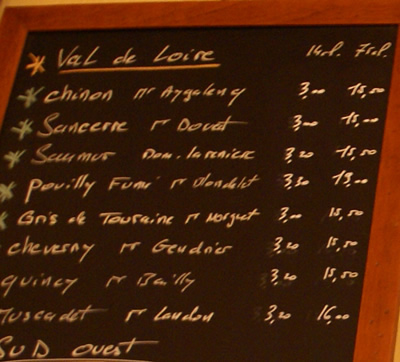 * Val de Loire 14cl. 75cl.
* Chinon Mr 3,00 15,50
* Sancerre Mr Douet 3,00 15,50
* Saumur Dom. 3,20 15,50
* Pouilly Fumé Mr 3,50 19,00
* Gris de Touraine Mr 3,00 15,50
Cheverny Mr Gendrier 3,20 15,50
Quincy Mr Bailly 3,20 15,50
Muscadet Mr Loudon 3,20 16,00
SUD OUEST